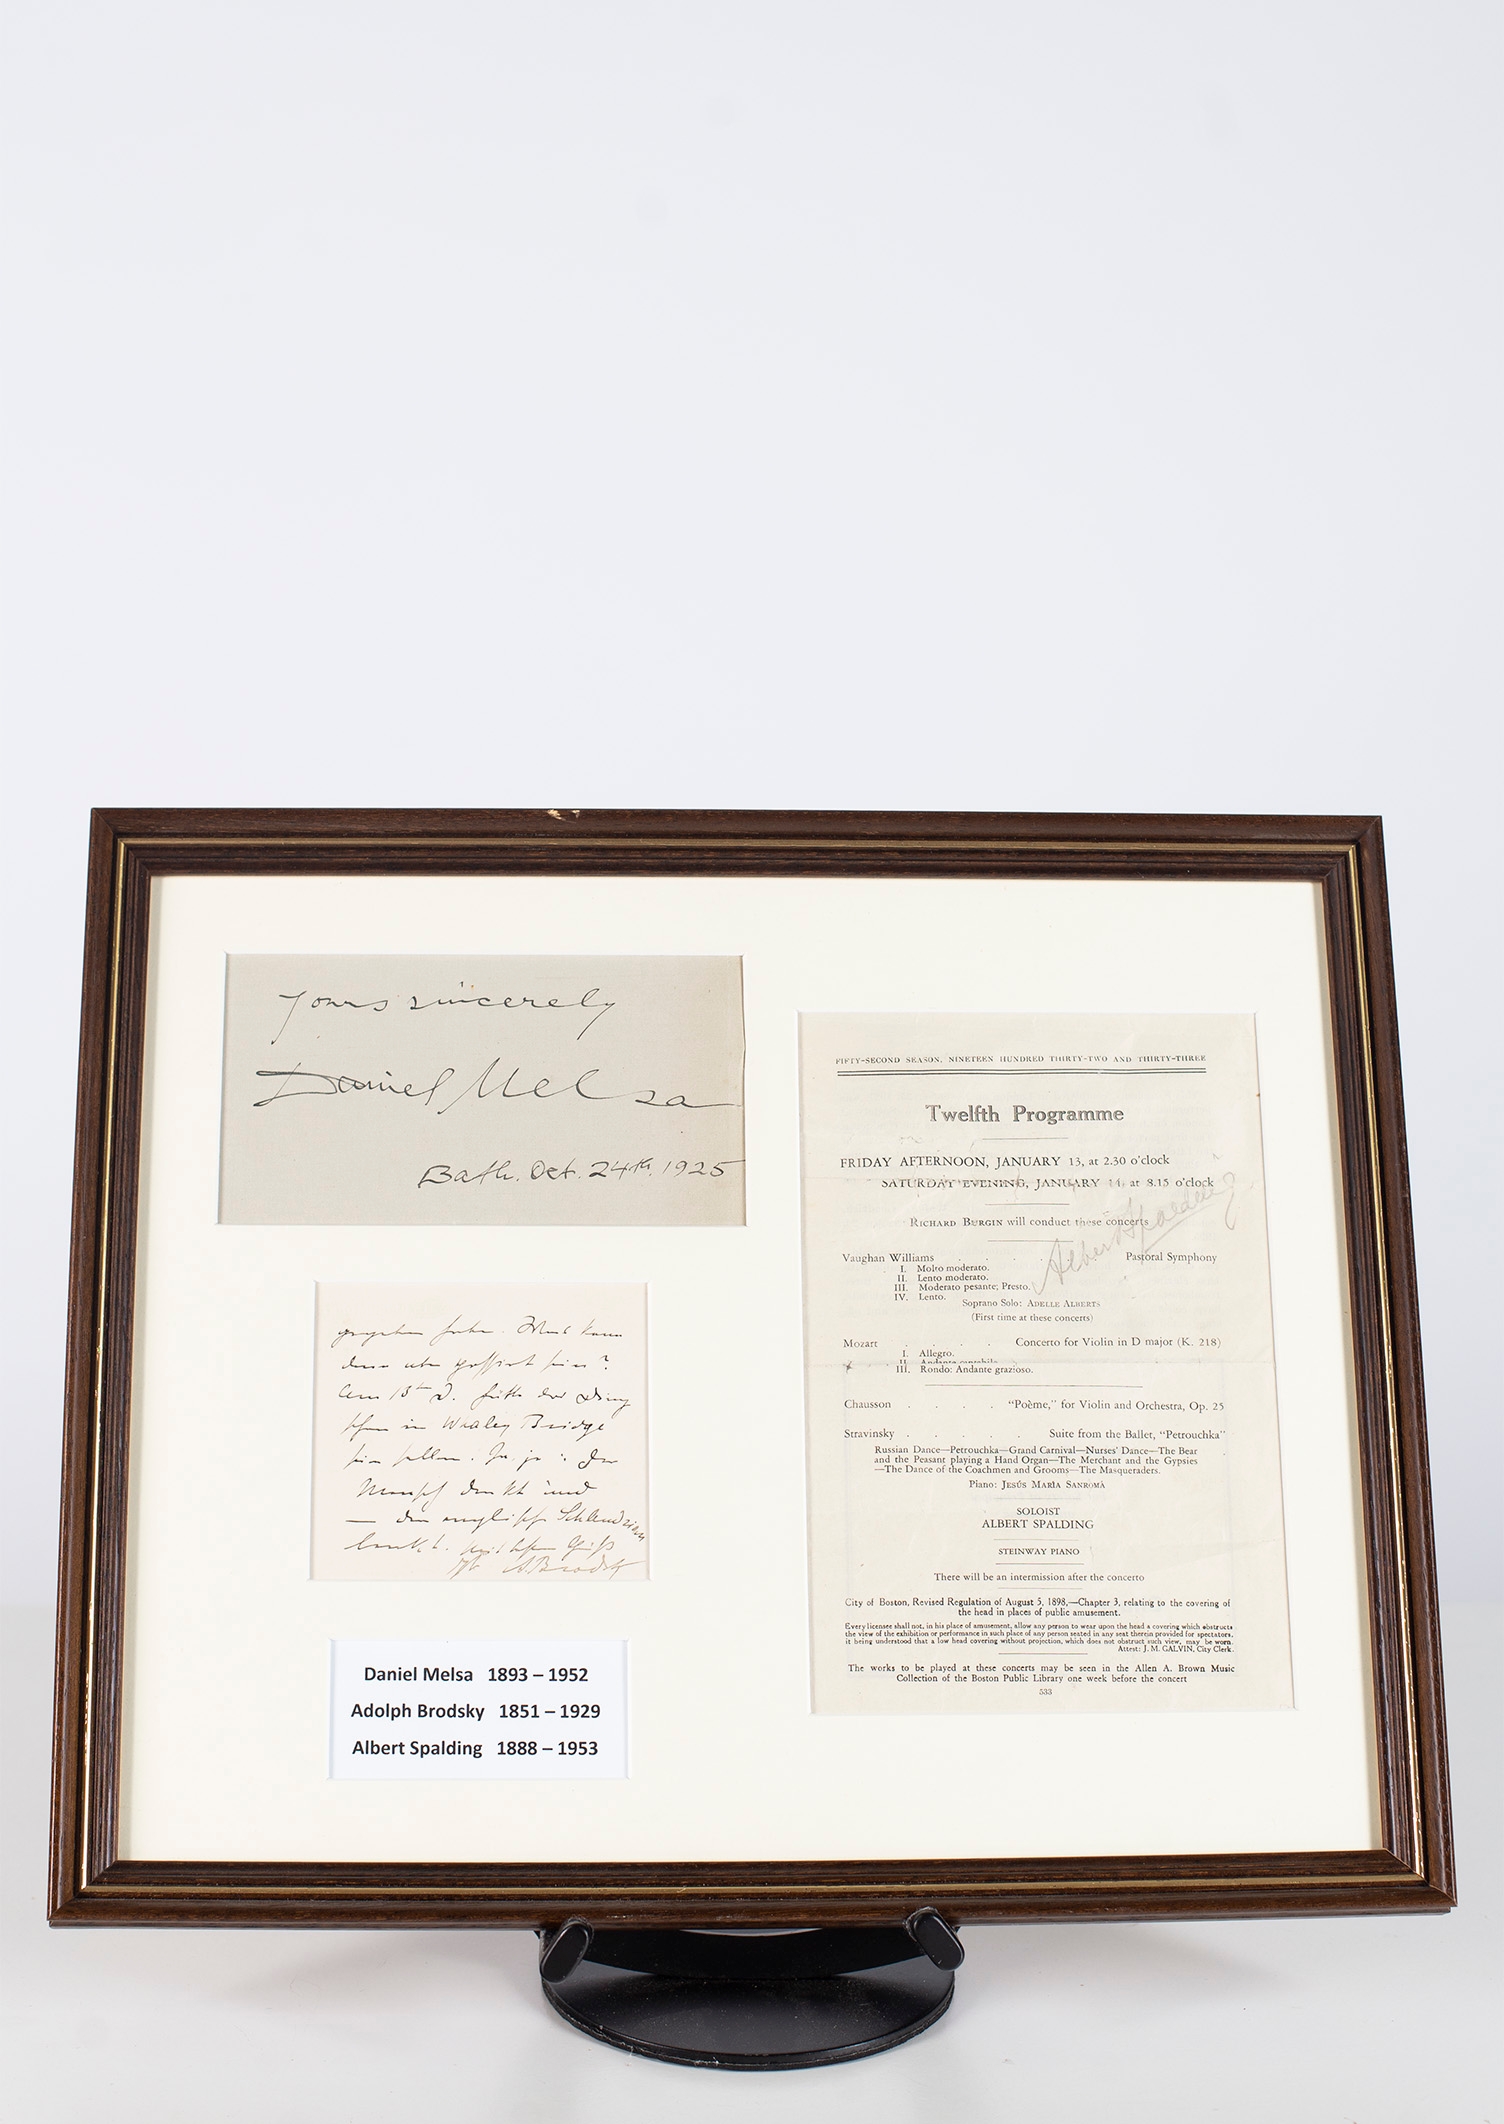 Yours sincerely
Daniel Melsa
Bath. Oct. 24th. 1925
gegeben habe. Was kann
denn aber passirt sein?
Am 13ten D. hätte das Ding
schon in Whaley Bridge
sein sollen. Ja, ja: der
Mensch denkt und
— der englische Schlendrian
lenkt. Mit besten Gruss
A. Brodsky
Daniel Melsa 1893 – 1952
Adolph Brodsky 1851 – 1929
Albert Spalding 1888 – 1953
FIFTY-SECOND SEASON, NINETEEN HUNDRED THIRTY-TWO AND THIRTY-THREE
Twelfth Programme
FRIDAY AFTERNOON, JANUARY 13, at 2.30 o'clock
SATURDAY EVENING, JANUARY 14, at 8.15 o'clock
RICHARD BURGIN will conduct these concerts
Albert Spalding
Vaughan Williams . . . . Pastoral Symphony
I. Molto moderato.
II. Lento moderato.
III. Moderato pesante; Presto.
IV. Lento.
Soprano Solo: ADELLE ALBERTS
(First time at these concerts)
Mozart . . . . Concerto for Violin in D major (K. 218)
I. Allegro.
II. Andante cantabile.
III. Rondo: Andante grazioso.
Chausson . . . . "Poème," for Violin and Orchestra, Op. 25
Stravinsky . . . . . Suite from the Ballet, "Petrouchka"
Russian Dance—Petrouchka—Grand Carnival—Nurses' Dance—The Bear
and the Peasant playing a Hand Organ—The Merchant and the Gypsies
—The Dance of the Coachmen and Grooms—The Masqueraders.
Piano: JESÚS MARÍA SANROMÁ
SOLOIST
ALBERT SPALDING
STEINWAY PIANO
There will be an intermission after the concerto
City of Boston, Revised Regulation of August 5, 1898,—Chapter 3, relating to the covering of
the head in places of public amusement.
Every licensee shall not, in his place of amusement, allow any person to wear upon the head a covering which obstructs
the view of the exhibition or performance in such place of any person seated in any seat therein provided for spectators,
it being understood that a low head covering without projection, which does not obstruct such view, may be worn.
Attest: J. M. GALVIN, City Clerk.
The works to be played at these concerts may be seen in the Allen A. Brown Music
Collection of the Boston Public Library one week before the concert
533